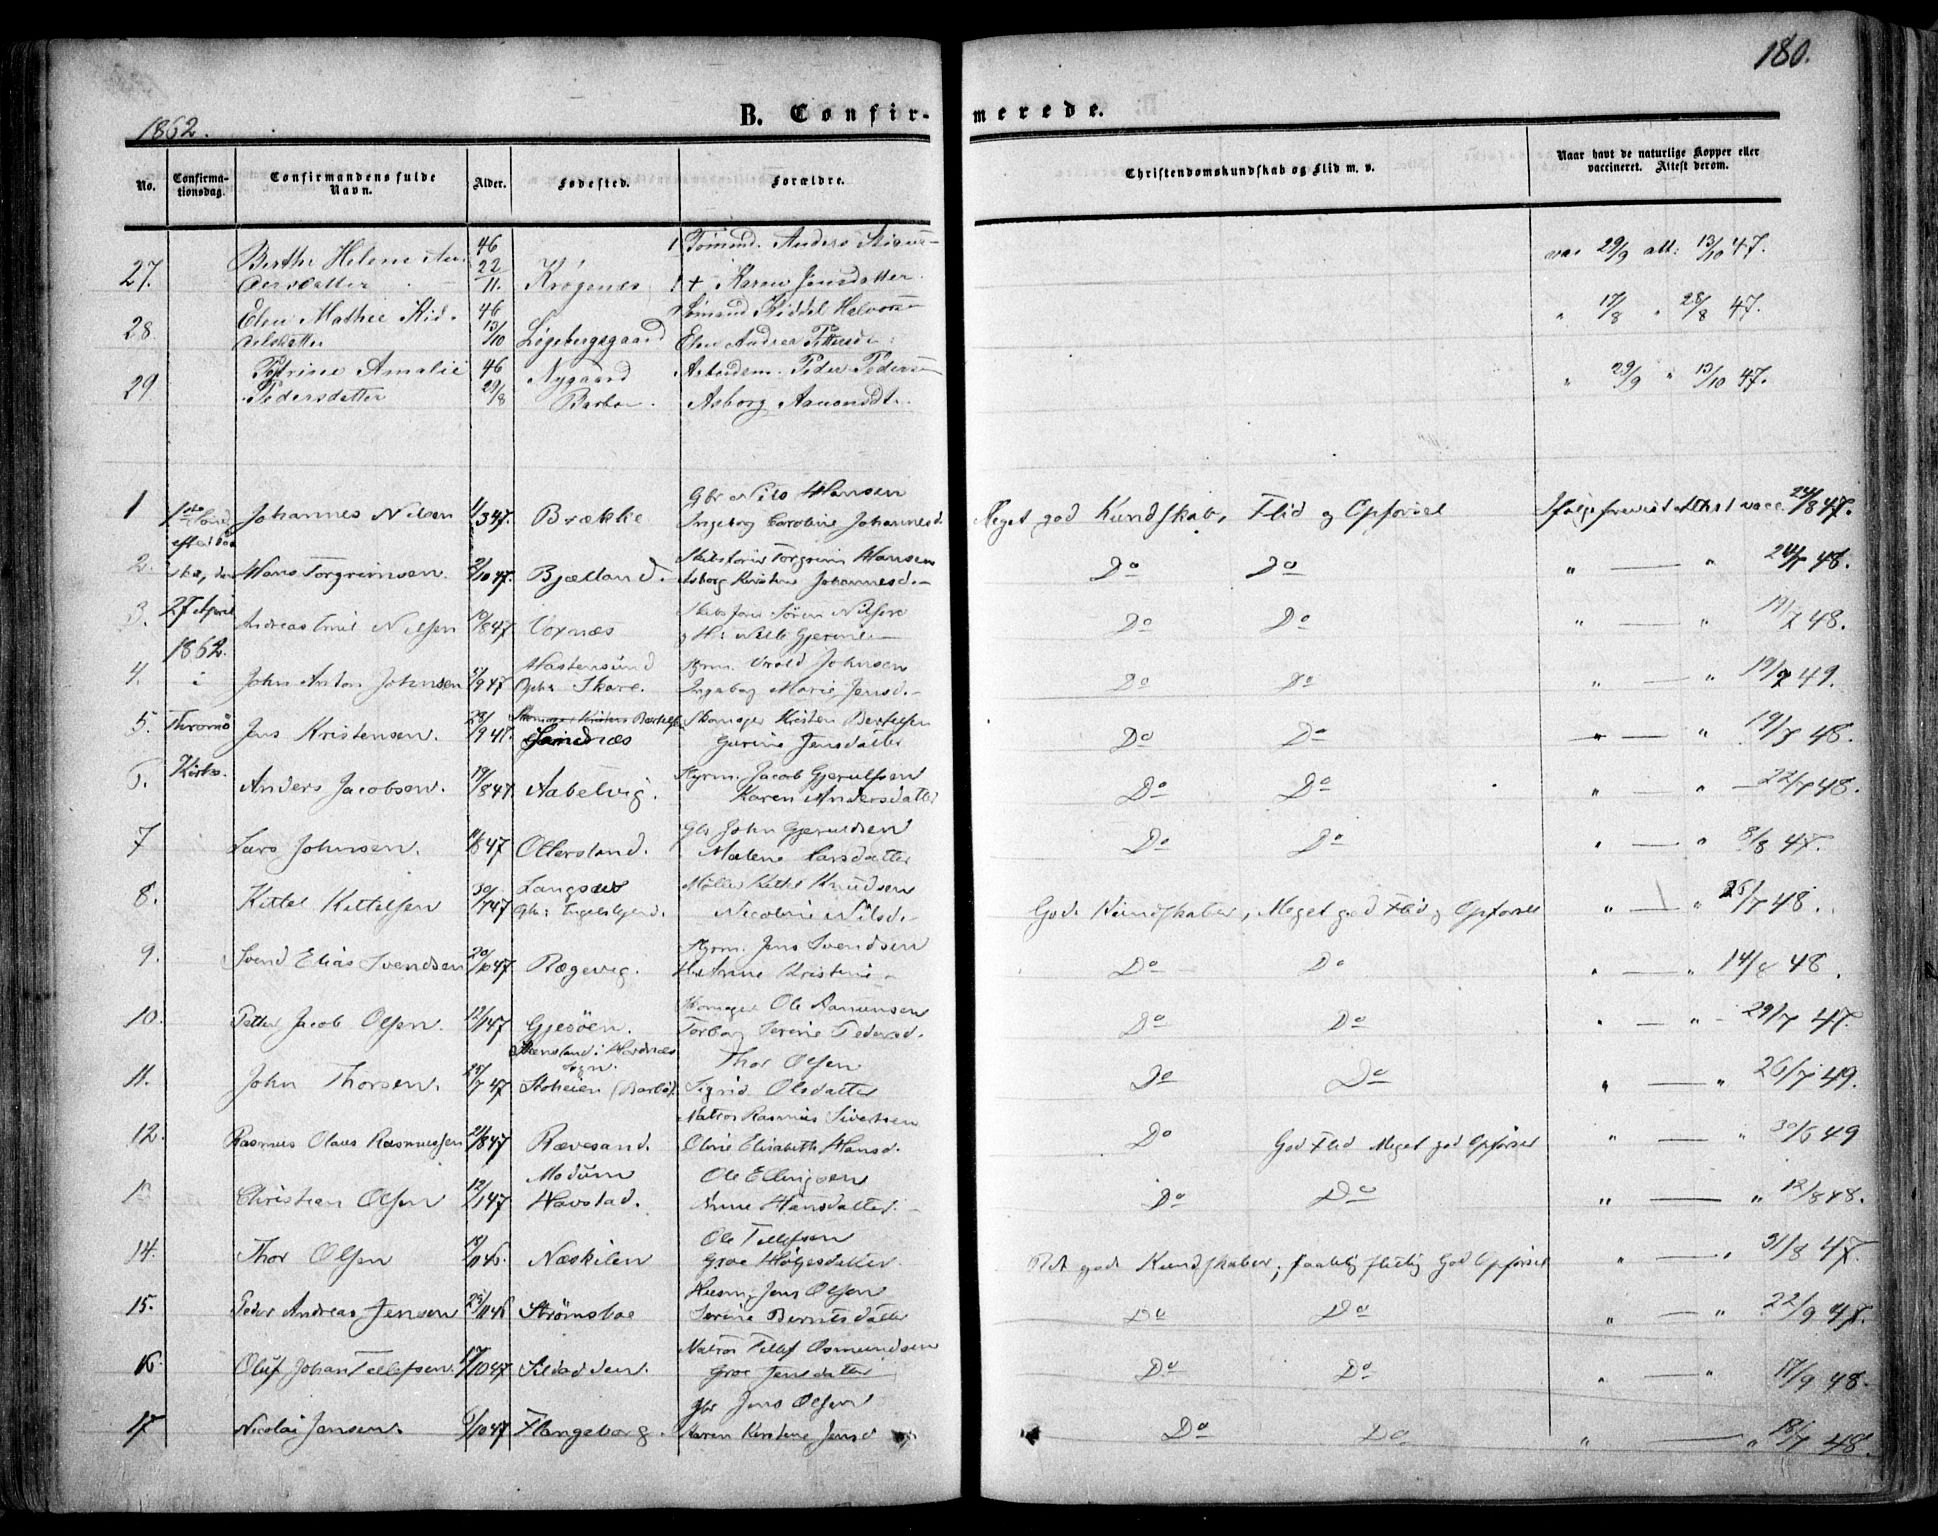 180.
1862.
B. Confirmerede.
No.
Confirmationsdag.
Confirmandens fulde Navn.
Alder.
Fødested.
Forældre.
Christendomskundskab og Flid m. v.
Naar havt de naturlige Kopper eller vaccineret. Attest derom.
27. Berthe Helene Andersdatter 46 22/11. Krøgenes Tømmd. Anders
† Karen Jensdatter. vac 29/9 att: 13/10 47.
28 Elen Mathee Kiddelsdatter 46 13/10 Løgebergsgaard Sömand Kiddel Halvors
Elen Andrea " 17/8 " 28/8 47.
29 Petrine Amalie Pedersdatter 46 29/8 Nygaard Barbo. Arbeidsm. Peder Peders
Asborg Aanondsdt. " 29/9 " 13/10 47.
1 1ste Sönd. efter Paaske, den 27 April 1862. i Thromö Kirke.
Johannes Nilsen 1/3 47. Brække Gbr Nils Hansen
Ingeborg Caroline Johannesd. Meget god Kundskab, Flid og Opførsel Ifølge forevist Attest vacc. 24/8 47.
2. Hans Torgrimsen. 2/10 47. Bjelland. Torgrim Hansen
Asborg Kirstine Johannesd. Do Do " — " 24/7 48.
3. Andreas Emil Nilsen 10/8 47 Voxnæs Søren Nilsen
Do Do " — " 19/7 48.
4. John Anton Johnsen 5/9 47 Hastensund
Skare. Styrm. Johnsen
Ingeborg Marie Jensd. Do Do " — " 19/7 49.
5. Jens Kristensen. 28/9 47. Sandnæs Skomager Kristen Bertelsen
Gurine Jensdatter Do Do " — " 19/7 48.
6. Anders Jacobsen. 19/8 47. Aabelvig. Styrm. Jacob Gjerulfsen
Karen Andersdatter Do Do " — " 22/7 48.
7 Lars Johnsen. 47 Otterstand. Gbr John Gjeruldsen
Malene Larsdatter Do Do " — " 8/8 47.
8. Kittel Kittelsen 30/7 47 Langsæv
Møller Kittel Knudsen
Nicoline Nilsd. Gode Kundskaber, Meget god Flid og Opførsel " — " 25/7 48.
9. Svend Elias Svendsen 20/10 47. Rægevig. Styrm. Jens Svendsen
Anne Kristine Do Do " — " 14/8 48.
10. Petter Jacob Olsen. 12/1 47 Gjesöen. Skomager Ole Aanunsen
Torborg Serine Pedersd. Do Do " — " 29/7 47.
11. John Thorsen. 25/7 47 i Hordnæs Sogn.
Stoheien (Barbo). Thor Olsen
Sigrid Olsdatter Do Do " — " 26/7 49.
12. Rasmus Olaus Rasmussen 21/8 47 Rævesand. Matros Rasmus Sivertsen
Oline Elisabeth Hansd. Do God Flid Meget god Opførsel " — " 30/6 49
13 Christian Olsen 12/1 47 Modum
Havstad. Ole Ellingsen
Anne Hansdatter. Do Do " — " 12/8 48.
14. Thor Olsen 18/10 46. Næskilen Ole Tellefsen
Groe Helgesdatter. Ret gode Kundskaber, taalelig flittig God Opførsel " — " 31/8 47.
15. Peder Andreas Jensen 23/11 46 Strømsboe Huusm. Jens Olsen
Serine Berntsdatter Do Do " — " 22/9 47.
16. Oluf Johan Tellefsen. 17/10 47 Sildodden. Matros Tellef Osmundsen
Groe Jensdatter Do Do " — " 17/9 48.
17 Nicolai Jensen. 6/10 47 Flangeborg. Gbr Jens Olsen
Karen Kirstine Jensd Do Do " — " 18/7 48.